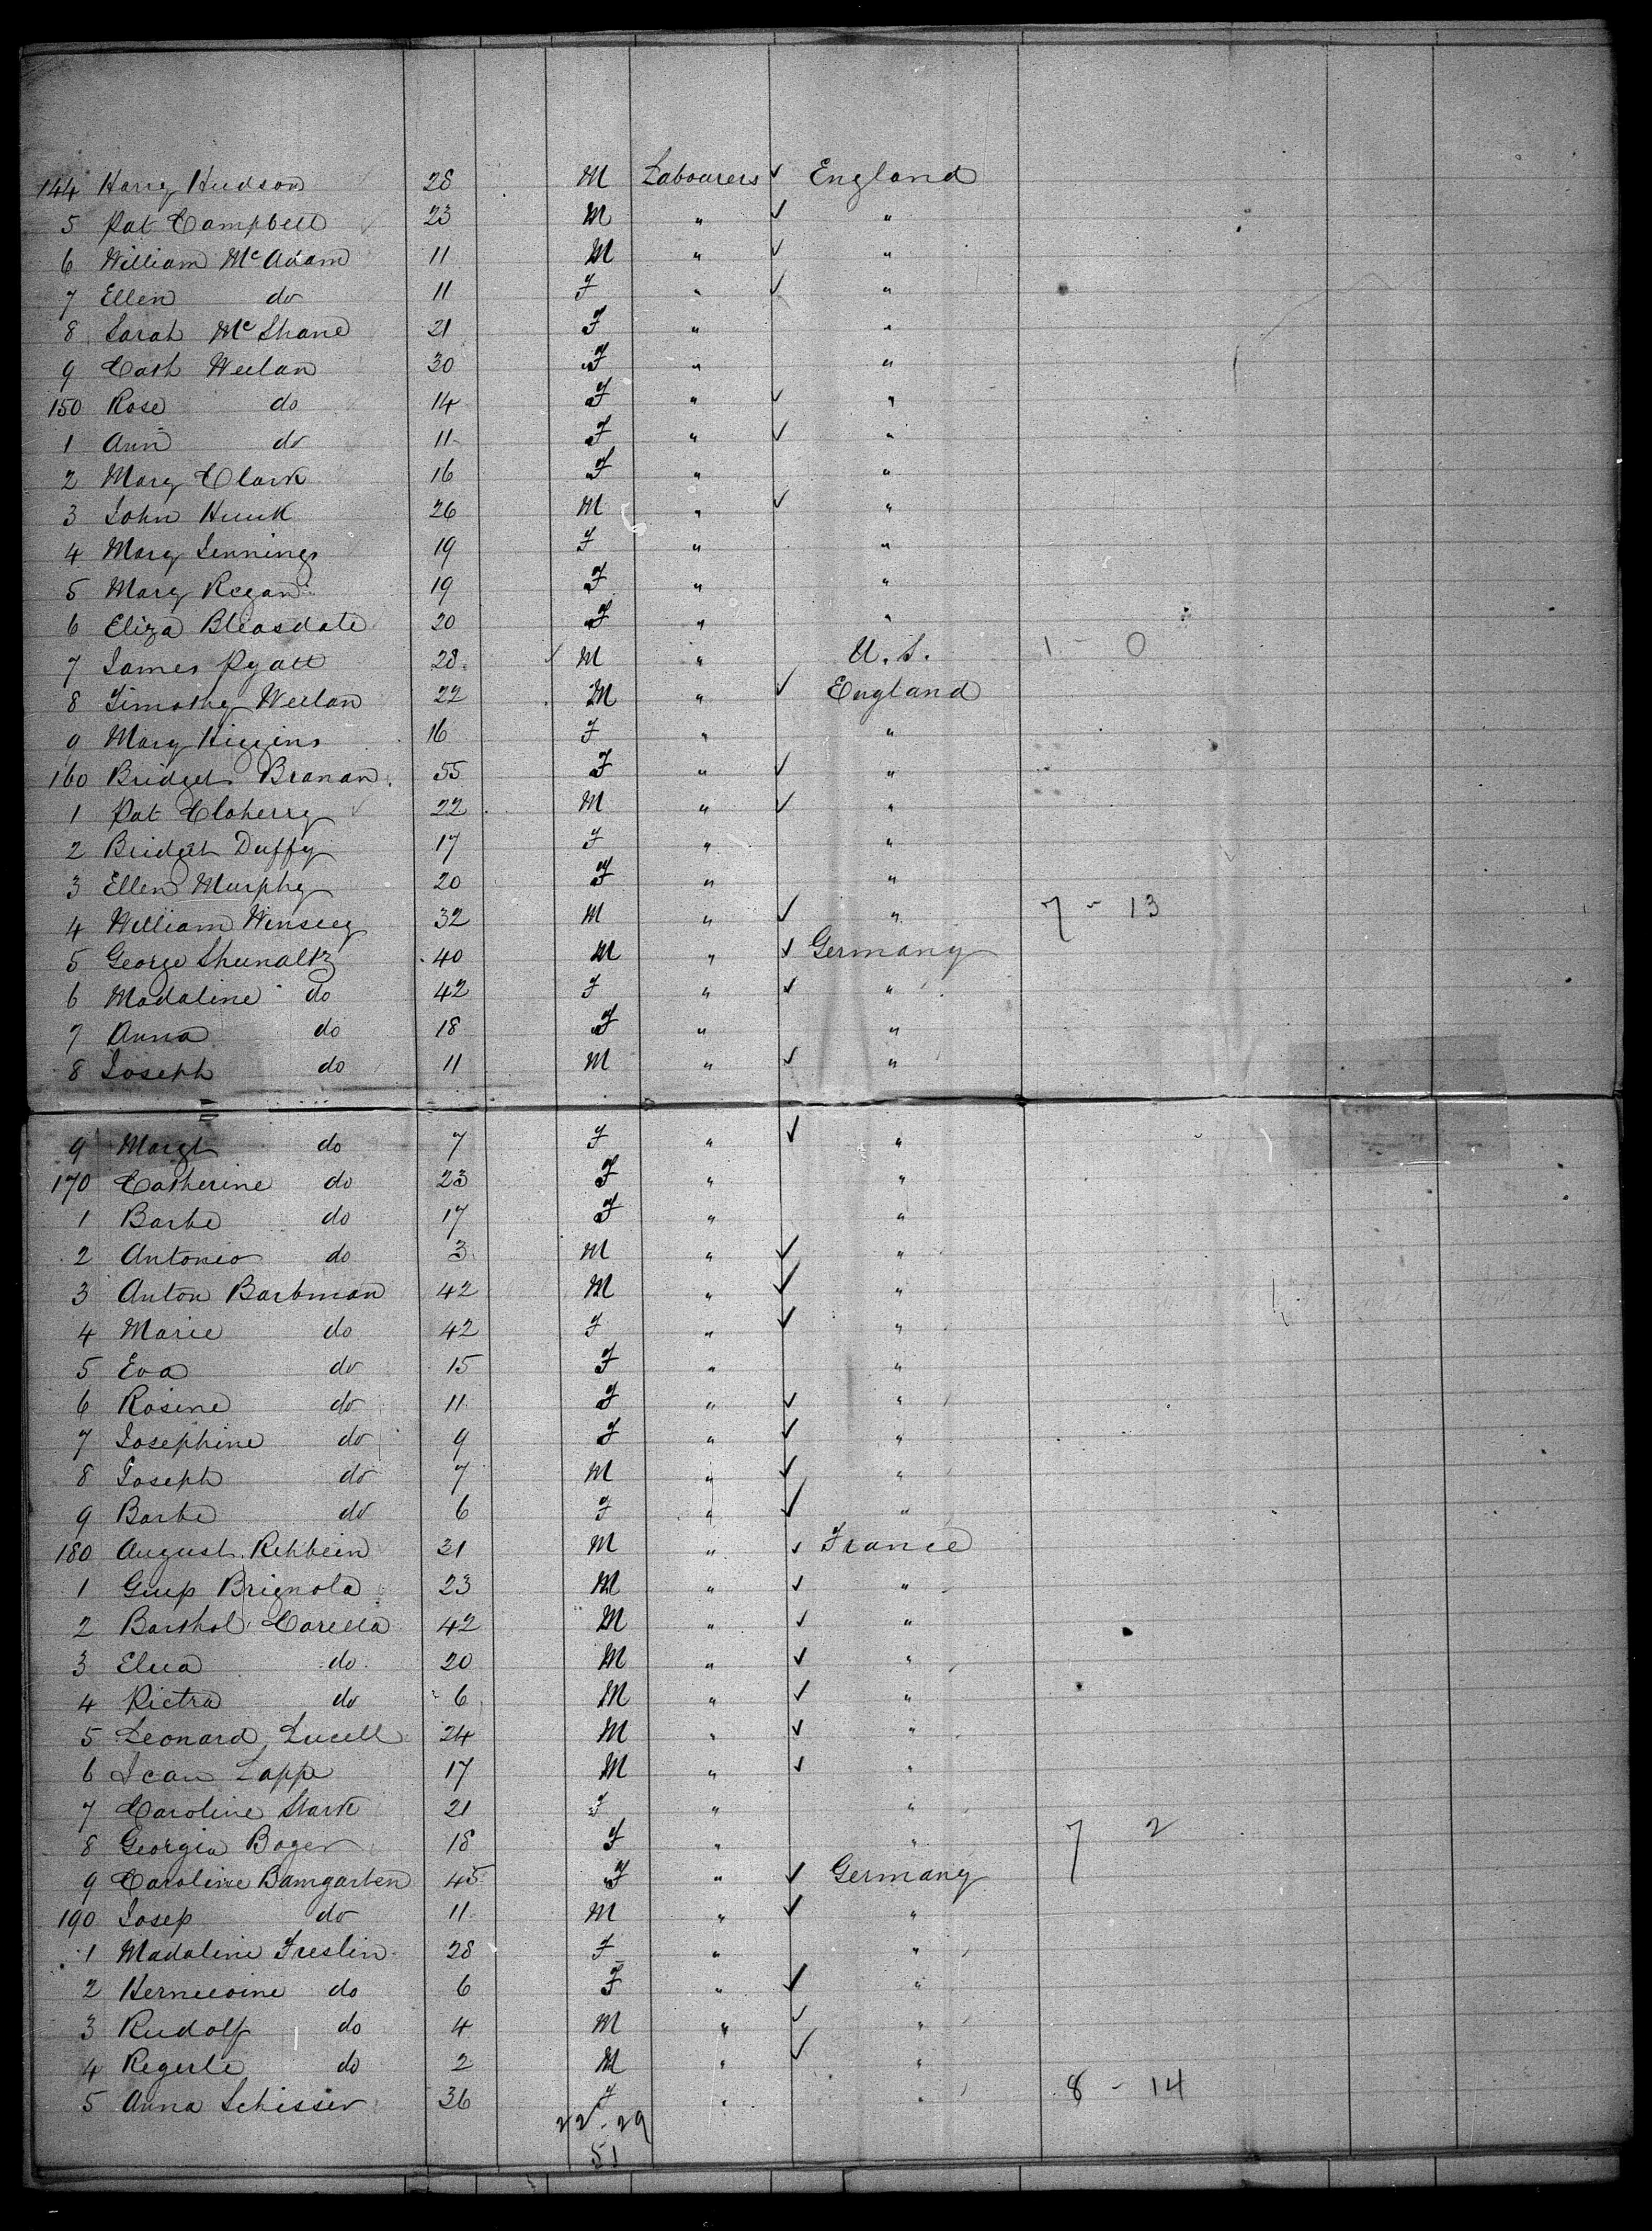 144 Harry Hudson 28 M Labourers ✓ England
5 Pat Campbell 23 M " ✓ "
6 William McAdam 11 M " ✓ "
7 Ellen do 11 F " ✓ "
8 Sarah McShane 21 F " "
9 Cath Weelan 30 F " "
150 Rose do 14 F " ✓ "
1 Ann do 11 F " ✓ "
2 Mary Clark 16 F " "
3 John 26 M " ✓ "
4 Mary Jennings 19 F " "
5 Mary Regan 19 F " "
6 Eliza Bleasdate 20 F " "
7 James Pyatt 28 ✓ M " U.S. 1 - 0
8 Timothy Weelan 22 M " ✓ England
9 Mary Higgins 16 F " "
160 Bridget Branan 55 F " ✓ "
1 Pat Cloherry 22 M " ✓ "
2 Bridget Duffy 17 F " "
3 Ellen Murphy 20 F " "
4 William 32 M " ✓ " 7 - 13
5 George Shunaltz 40 M " ✓ Germany
6 Madaline do 42 F " ✓ "
7 Anna do 18 F " "
8 Joseph do 11 M " ✓ "
9 Margt do 7 F " ✓ "
170 Catherine do 23 F " "
1 Barbe do 17 F " "
2 Antonio do 3 M " ✓ "
3 Anton Barbman 42 M " ✓ "
4 Marie do 42 F " ✓ "
5 Eva do 15 F " "
6 Rosine do 11 F " ✓ "
7 Josephine do 9 F " ✓ "
8 Joseph do 7 M " ✓ "
9 Barbe do 6 F " ✓ "
180 August Rehbein 31 M " ✓ France
1 Guip Brignola 23 M " ✓ "
2 Barthol Carella 42 M " ✓ "
3 do 20 M " ✓ "
4 Pietra do 6 M " ✓ "
5 Leonard Lucell 24 M " ✓ "
6 Jean Lapp 17 M " ✓ "
7 Caroline Stark 21 F " "
8 Georgia Boger 18 F " " 7 2
9 Caroline Bamgarten 45 F " ✓ Germany
190 Josep do 11 M " ✓ "
1 Madaline Freslin 28 F " "
2 do 6 F " ✓ "
3 Rudolf do 4 M " ✓ "
4 Regerle do 2 M " ✓ "
5 Anna Schisser 36 F " " 8 - 14
22 - 29
51